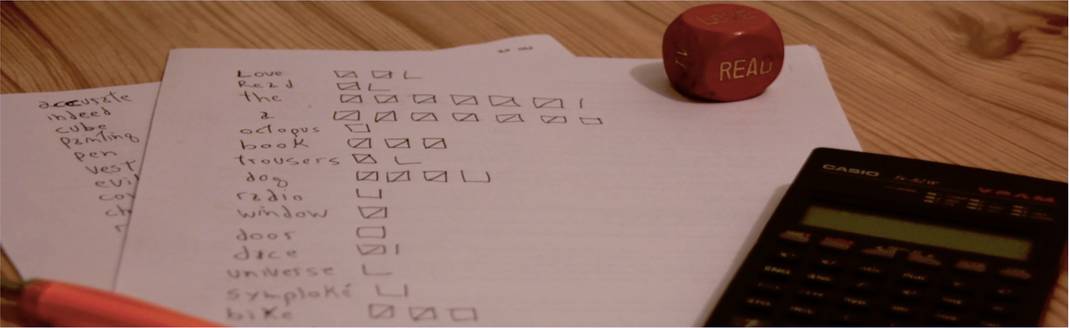 accurate
indeed
cube
painting
pen
vest
evil
Love
Read
the
a
octopus
book
trousers
dog
radio
window
door
dice
universe
symploké
bike
READ
CASIO